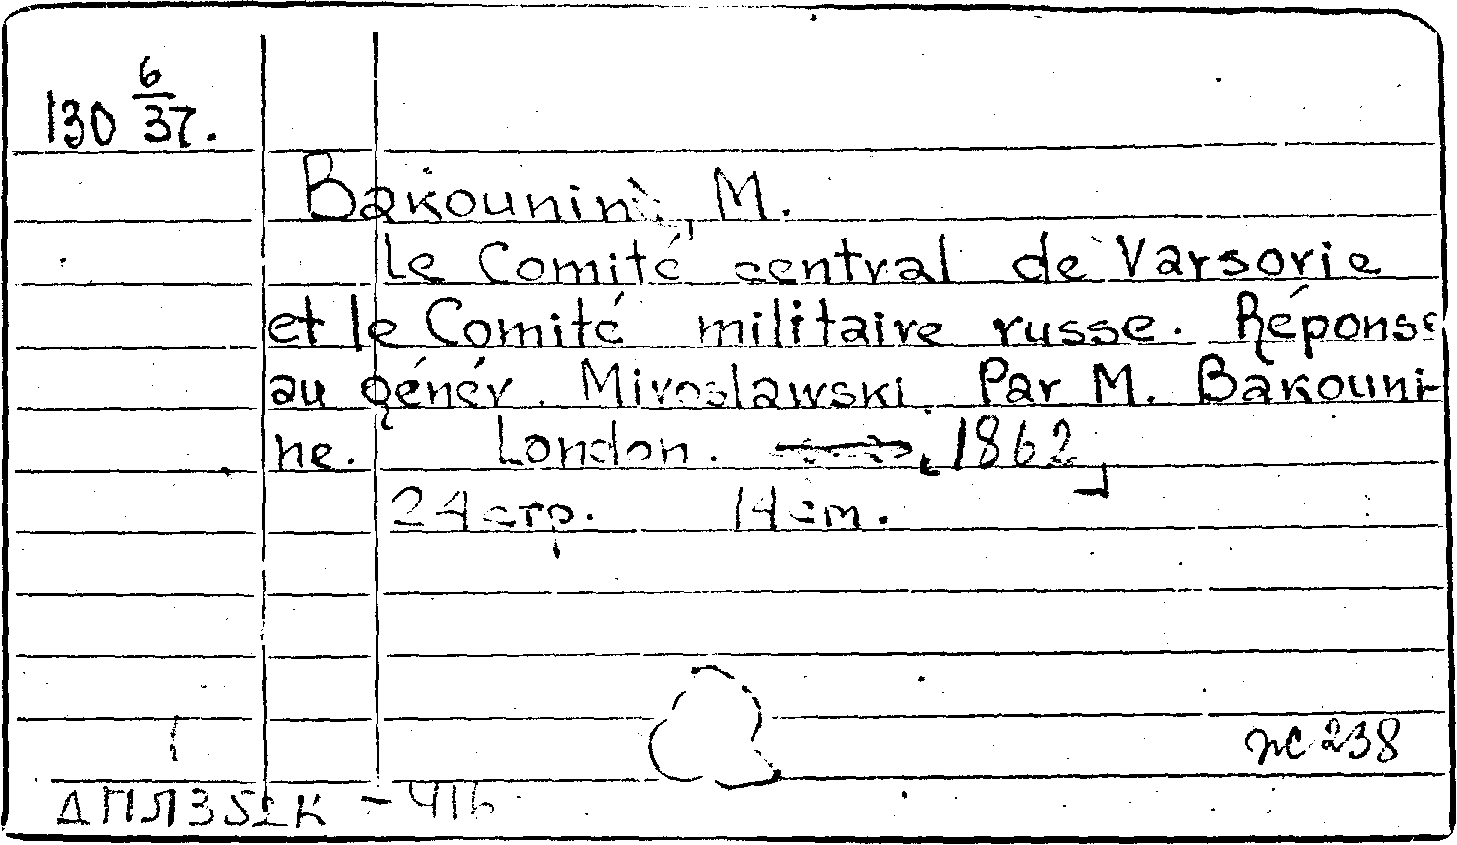 130 6/37.
Bakounin, M.
Le Comité central de Varsovie
et le Comité militaire russe. Réponse
au génér. Miroslawski. Par M. Bakouni-
ne. London. [1862]
24 стр. 14 cm.
ж 238